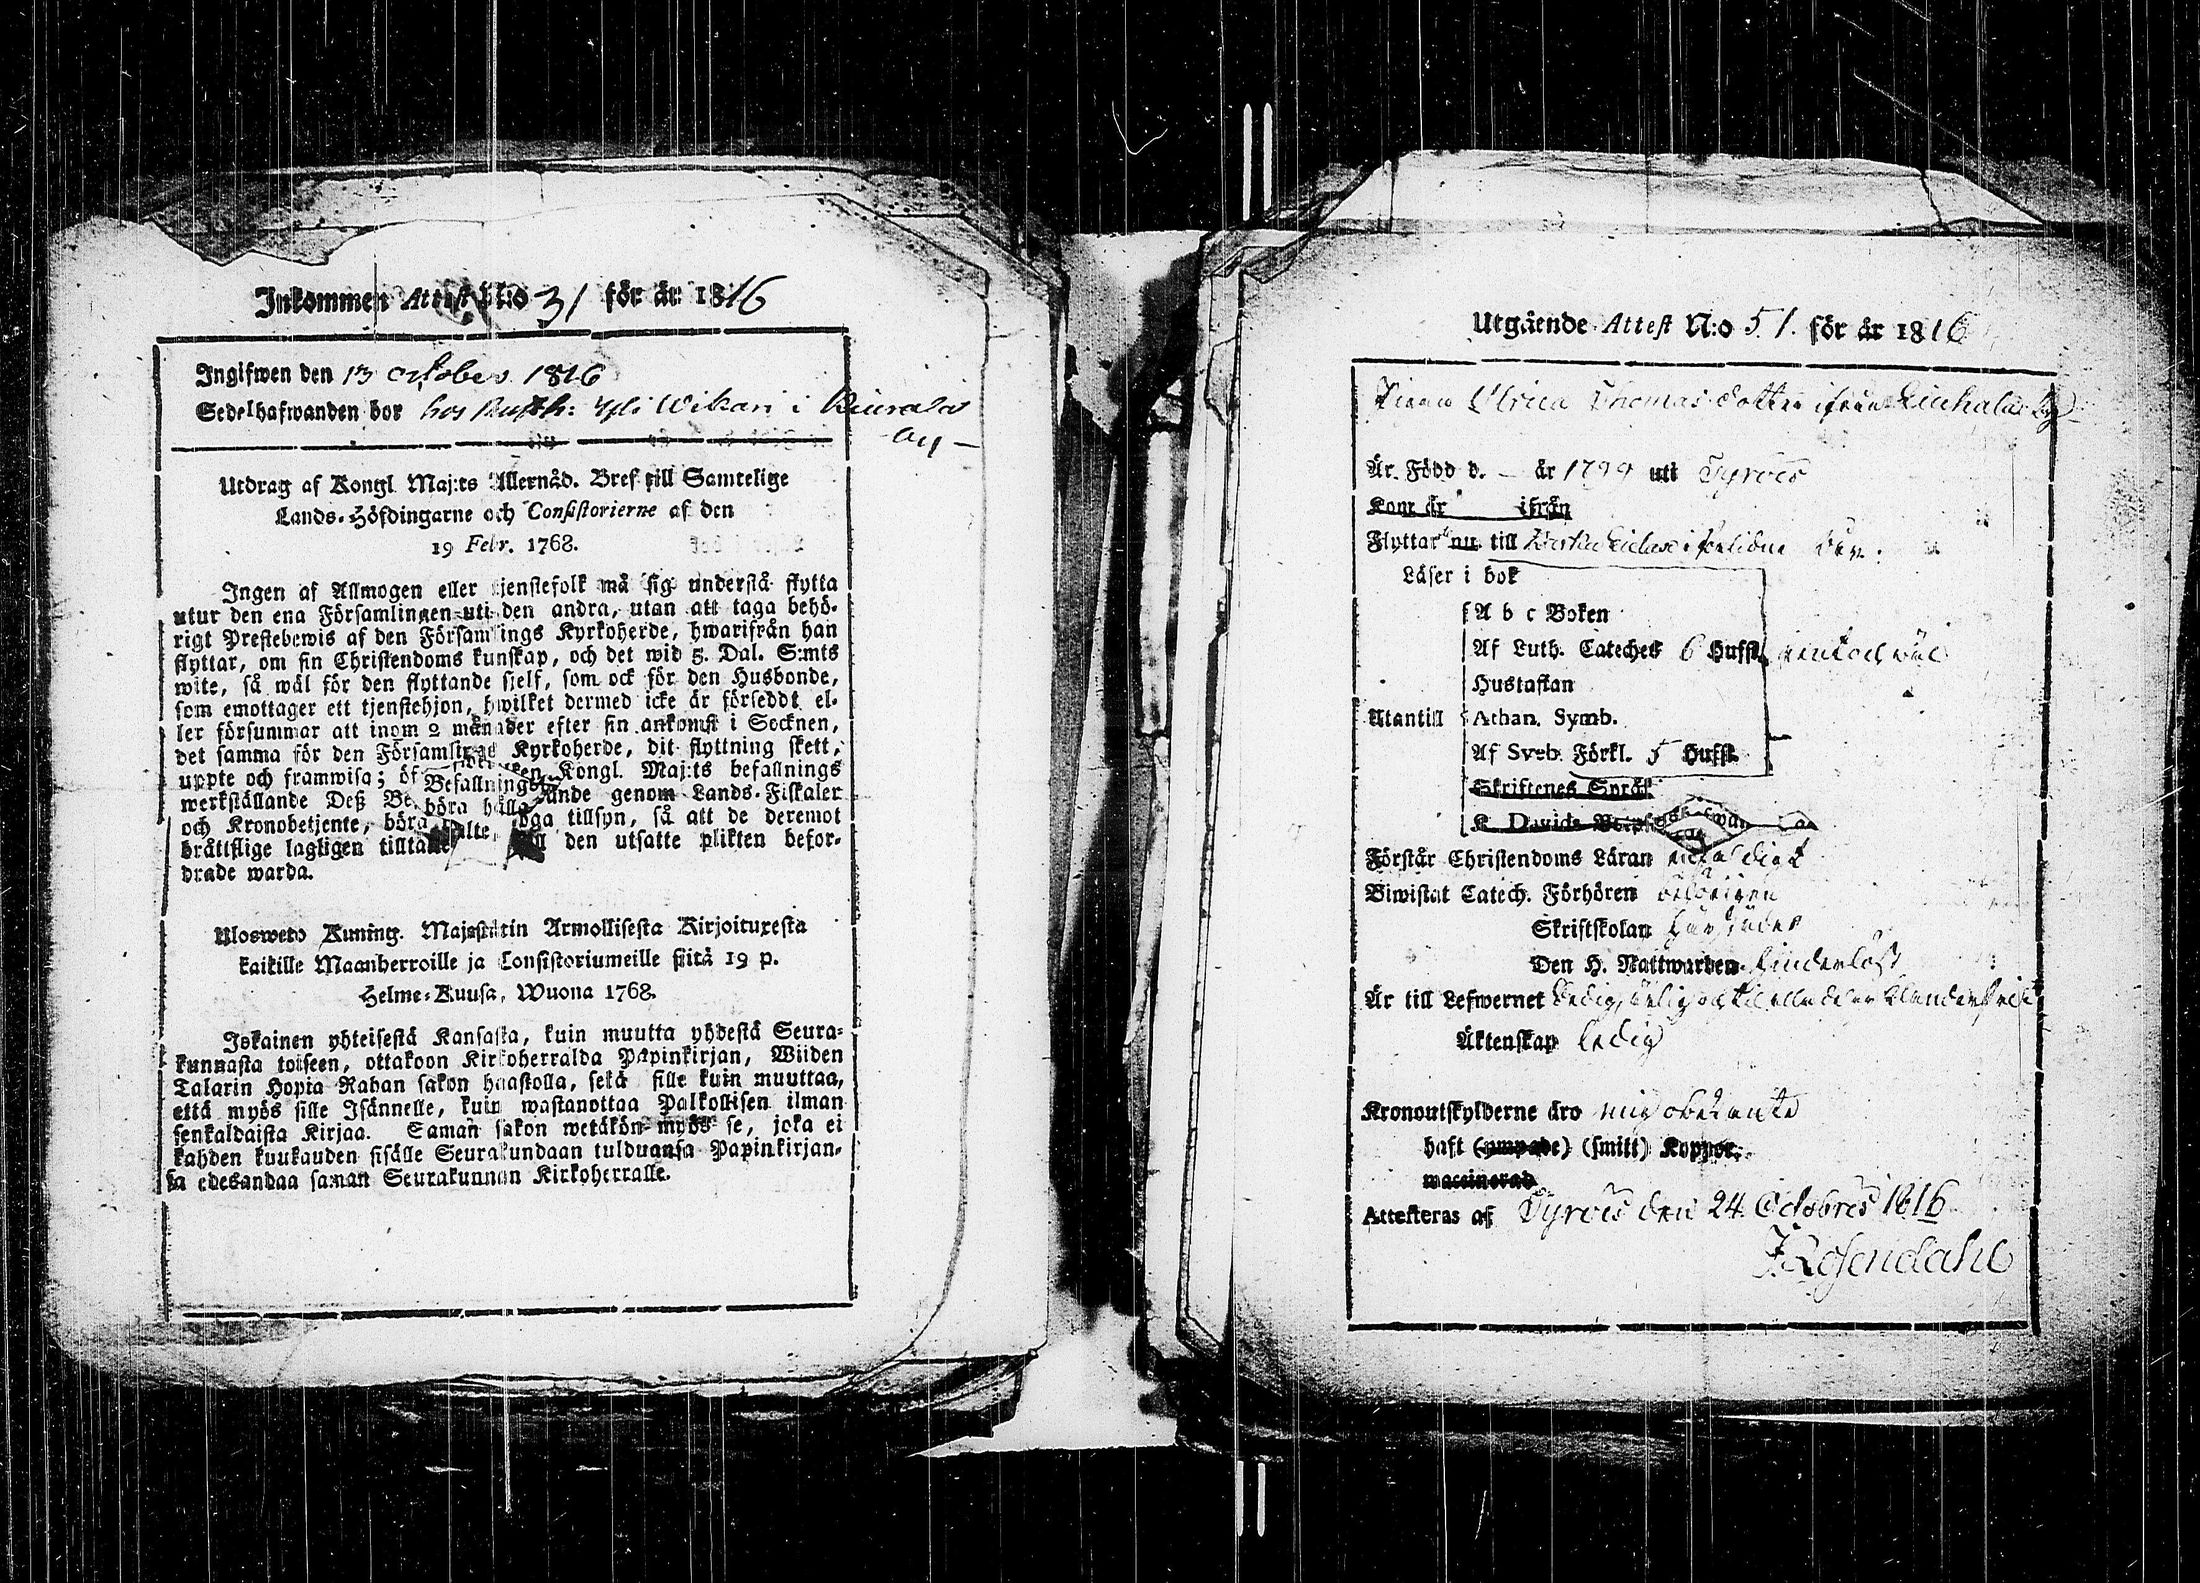 Inkommen Attest N:o 31 för år 1816
Ingifwen den 13 october 1816
Sedelhafwanden bor hos Rusth: Ypli Wikari i Kiurala
by
Utdrag af Kongl Maj:ts Allernåd. Bref till Samtelige
Lands-Höfdingarne och Consistorierne af den
19 Febr. 1768.
Ingen af Allmogen eller tjenstefolk må sig understå flytta
utur den ena Församlingen uti den andra, utan att taga behö-
rigt Prestebewis af den Församlings Kyrkoherde, hwarifrån han
flyttar, om sin Christendoms kunskap, och det wid 5. Dal. S:mts
wite, så wäl för den flyttande sjelf, som ock för den Husbonde,
som emottager ett tjenstehjon, hwilket dermed icke är förseddt el-
ler försummar att inom 2 månader efter sin ankomst i Socknen,
det samma för den Församlings Kyrkoherde, dit flyttning skett,
uppte och framwisa; Kongl. Maj:ts befallnings
Befallnings
werkställande Deß genom Lands-Fiskaler
böra hålla
och Kronobetjente, böra noga tillsyn, så att de deremot
bråttslige lagligen tilltalte, till den utsatte plikten befor-
drade warda.
Ulosweto Kuning. Majestätin Armollisesta Kirjoituxesta
kaikille Maanherroille ja Consistoriumeille siitä 19 p.
Helme-Kuusa, Wuona 1768.
Jokainen yhteisestä Kansasta, kuin muutta yhdestä Seura-
kunnasta toiseen, ottakoon Kirkoherralda Papinkirjan, Wiiden
Talarin Hopia Rahan sakon haastolla, sekä sille kuin muuttaa,
että myös sille Isännelle, kuin wastanottaa Palkollisen ilman
senkaldaista Kirjaa. Saman sakon wetäkön myös se, joka ei
kahden kuukauden sisälle Seurakundaan tulduansa Papinkirjan-
sa edesandaa saman Seurakunnan Kirkoherralle.
Utgående Attest N:o 51. för år 1816
Pigan Ulrica Thomas dotter ifrån by
Är Född d. – år 1799 uti Tyrvis
Kom år ifrån
Flyttar nu till
Läser i bok
A b c Boken
Af Luth. Cateches 6 Hufst. rent och wäl
Hustaflan
Utantill Athan. Symb.
Af Sveb. Förkl. 5 Hufst.
Skriftenes Språk
K. Davids
Förstår Christendoms Läran
Biwistat Catech. Förhören
Skriftskolan
Den H. Nattwarden
Är till Lefwernet Ledig, ärlig och
Äktenskap ledig
Kronoutskylderne äro mig obekante
haft (ympade) (smitt) Koppor,
waccinerad
Attesteras af Tyrvis den 24 Octobris 1816
J. Rosendahl